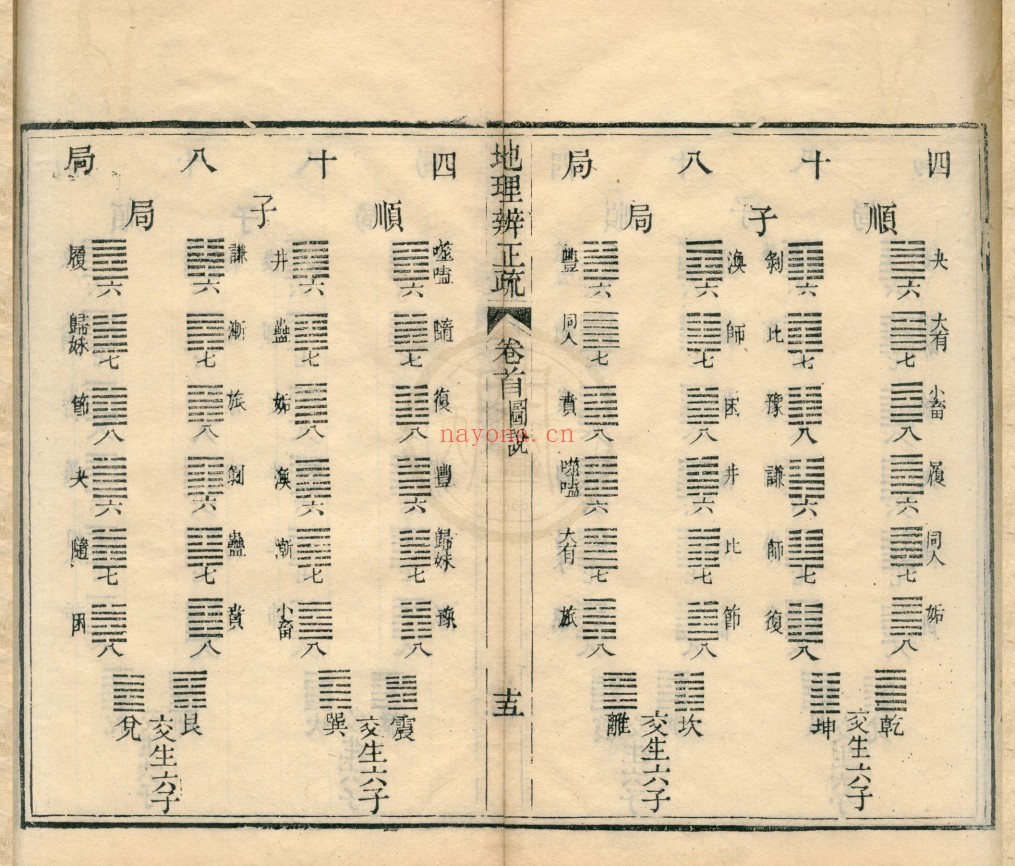 四十八局
順子局
夬 大有 小畜 履 同人 姤
六 七 八 六 七 八
乾
交生六子
剝 比 豫 謙 師 復
六 七 八 六 七 八
坤
渙 師 困 井 比 節
六 七 八 六 七 八
坎
交生六子
豐 同人 賁 噬嗑 大有 旅
六 七 八 六 七 八
離
地理辨正疏 卷首 圖說 十五
四十八局
順子局
噬嗑 隨 復 豐 歸妹 豫
六 七 八 六 七 八
震
交生六子
井 蠱 姤 渙 漸 小畜
六 七 八 六 七 八
巽
謙 漸 旅 剝 蠱 賁
六 七 八 六 七 八
艮
交生六子
履 歸妹 節 夬 隨 困
六 七 八 六 七 八
兌
nayona.cn